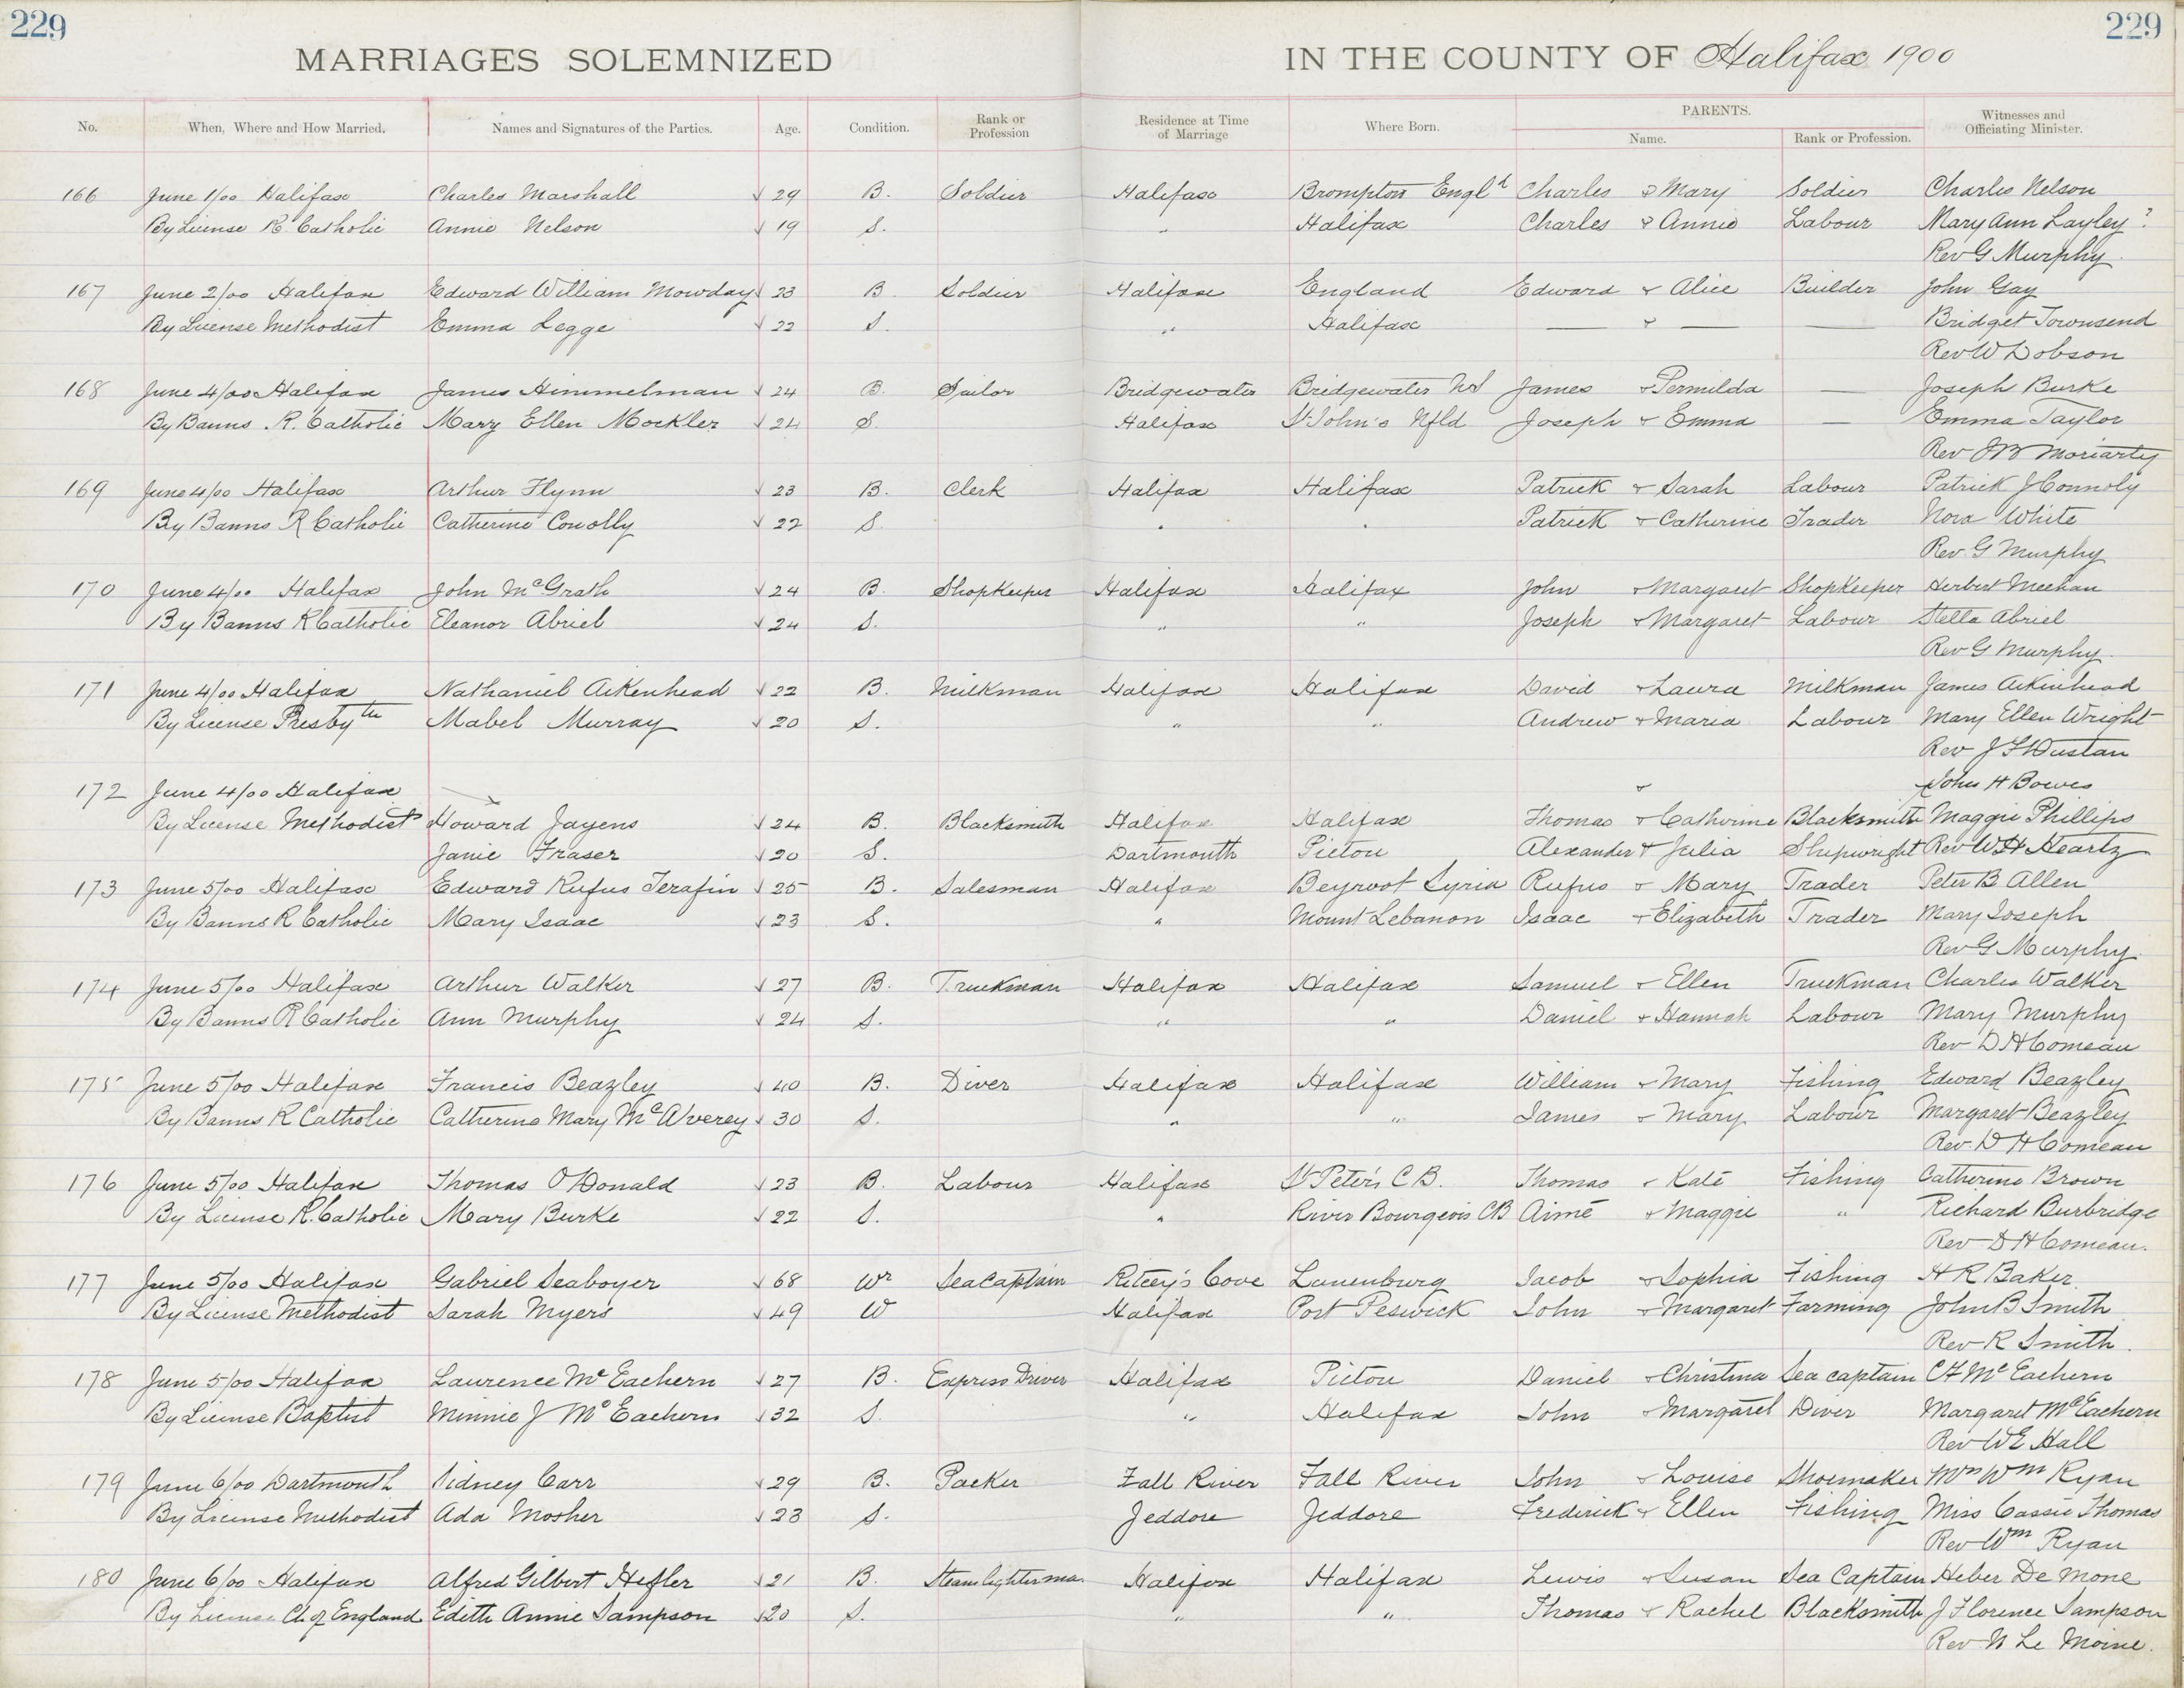 229 229
MARRIAGES SOLEMNIZED IN THE COUNTY OF Halifax 1900
No. When, Where and How Married. Names and Signatures of the Parties. Age. Condition. Rank or Profession Residence at Time of Marriage Where Born. PARENTS. Name. Rank or Profession. Witnesses and Officiating Minister.
166 June 1/00 Halifax Charles Marshall √ 29 B. Soldier Halifax Brompton Engld Charles & Mary Soldier Charles Nelson
By License R. Catholic Annie Nelson √ 19 S. " Halifax Charles & Annie Labour Mary Ann Layley ?
Rev G Murphy
167 June 2/00 Halifax Edward William Mowday √ 23 B Soldier Halifax England Edward & Alice Builder John Gay
By License Methodist Emma Legge √ 22 S. " Halifax — & — — Bridget Townsend
Rev W Dobson
168 June 4/00 Halifax James Himmelman √ 24 B. Sailor Bridgewater Bridgewater NS James & Permilda — Joseph Burke
By Banns . R. Catholic Mary Ellen Mockler √ 24 S. Halifax St John's Nfld Joseph & Emma — Emma Taylor
Rev Moriarty
169 June 4/00 Halifax Arthur Flynn √ 23 B. Clerk Halifax Halifax Patrick & Sarah Labour Patrick J Connoly
By Banns R Catholic Catherine Conolly √ 22 S. " " Patrick & Catherine Trader Nora White
Rev. G Murphy
170 June 4/00 Halifax John McGrath √ 24 B. ShopKeeper Halifax Halifax John & Margaret ShopKeeper Herbert Meehan
By Banns R Catholic Eleanor Abriel √ 24 S. " " Joseph & Margaret Labour Stella Abriel
Rev G Murphy.
171 June 4/00 Halifax Nathaniel Aikenhead √ 22 B. Milkman Halifax Halifax David & Laura Milkman James Aikinhead
By License Presbytn Mabel Murray √ 20 S. " " Andrew & Maria Labour Mary Ellen Wright
Rev J F Dustan
172 June 4/00 Halifax & John H Bowes
By License Methodist Howard Jayens √ 24 B. Blacksmith Halifax Halifax Thomas & Catherine Blacksmith Maggie Phillips
Janie Fraser √ 20 S. Dartmouth Pictou Alexander & Julia Shipwright Rev W H Heartz
173 June 5/00 Halifax Edward Rufus Terafin √ 25 B. Salesman Halifax Beyroot Syria Rufus & Mary Trader Peter B Allen
By Banns R Catholic Mary Isaac √ 23 S. " Mount Lebanon Isaac & Elizabeth Trader Mary Joseph
Rev G Murphy.
174 June 5/00 Halifax Arthur Walker √ 27 B. Truckman Halifax Halifax Samuel & Ellen Truckman Charles Walker
By Banns R Catholic Ann Murphy √ 24 S. " " Daniel & Hannah Labour Mary Murphy
Rev D H Comeau
175 June 5/00 Halifax Francis Beazley √ 40 B. Diver Halifax Halifax William & Mary Fishing Edward Beazley
By Banns R Catholic Catherine Mary McAverey √ 30 S. " " James & Mary Labour Margaret Beazley
Rev. D H Comeau
176 June 5/00 Halifax Thomas O'Donald √ 23 B. Labour Halifax St Peter's C B. Thomas & Kate Fishing Catherine Brown
By License R. Catholic Mary Burke √ 22 S. " River Bourgeois CB Aimé & Maggie " Richard Burbridge
Rev D H Comeau.
177 June 5/00 Halifax Gabriel Seaboyer √ 68 Wr Sea Captain Ritcey's Cove Lunenburg Jacob & Sophia Fishing H R Baker
By License Methodist Sarah Myers √ 49 W Halifax Port Peswick John & Margaret Farming John B Smith
Rev R Smith.
178 June 5/00 Halifax Laurence McEachern √ 27 B. Express Driver Halifax Pictou Daniel & Christina Sea captain C F McEachern
By License Baptist Minnie J McEachern √ 32 S. " Halifax John & Margaret Diver Margaret McEachern
Rev W E Hall
179 June 6/00 Dartmouth Sidney Carr √ 29 B. Packer Fall River Fall River John & Louise Shoemaker Mrs Wm Ryan
By License Methodist Ada Mosher √ 23 S. Jeddore Jeddore Frederick & Ellen Fishing Miss Cassie Thomas
Rev Wm Ryan
180 June 6/00 Halifax Alfred Gilbert Hefler √ 21 B. Steam lighterman Halifax Halifax Lewis & Susan Sea Captain Heber De Mone
By License Ch of England Edith Annie Sampson √ 20 S. " " Thomas & Rachel Blacksmith J Florence Sampson
Rev N Le Moine.